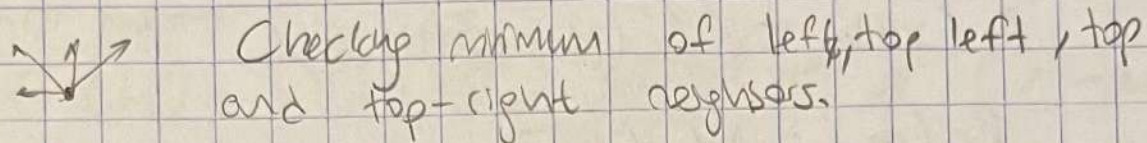 Checking minimum of left, top left, top
and top-right neighbors.